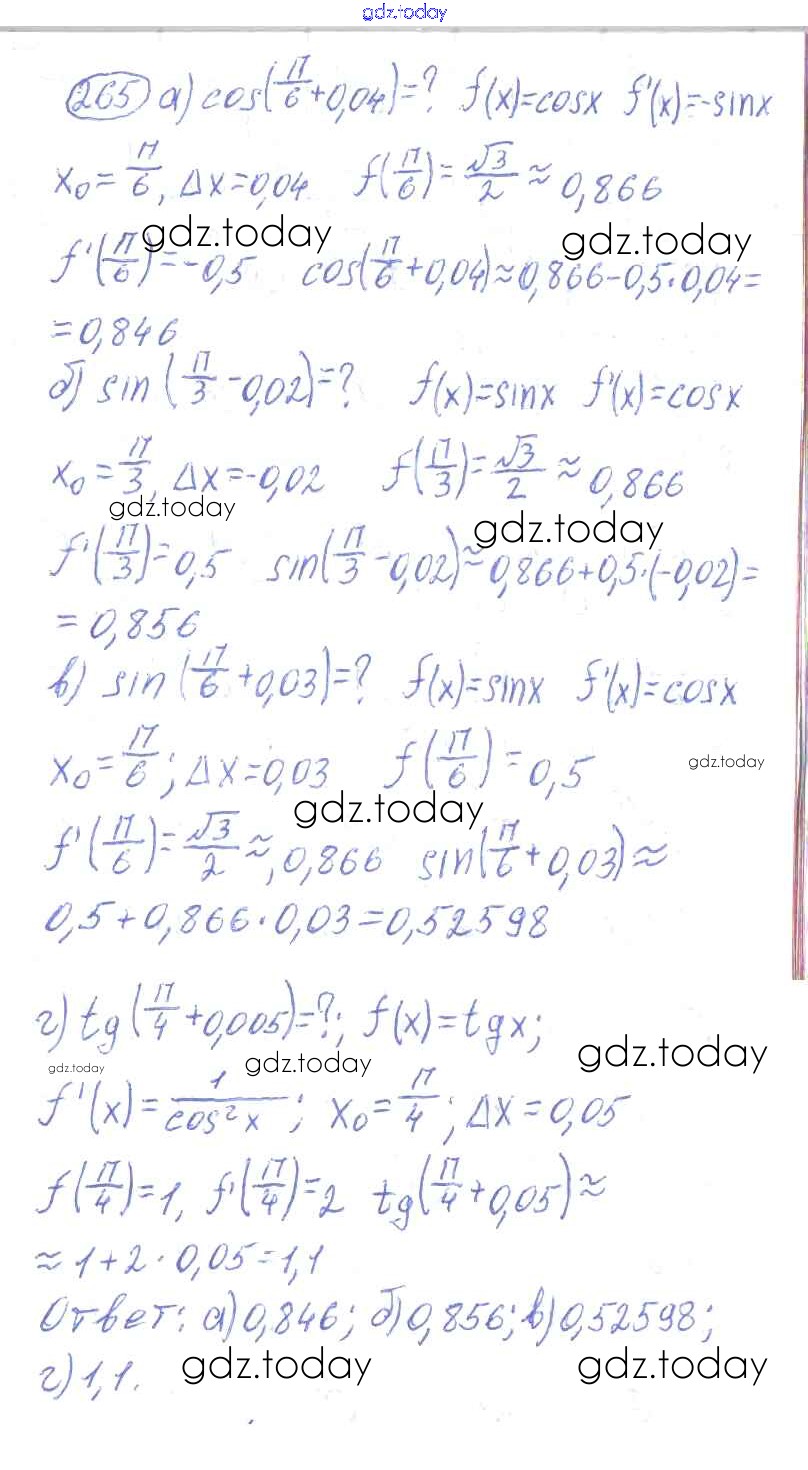 gdz.today
265 а) cos(π/6+0,04)=? f(x)=cosx f'(x)=-sinx
x₀=π/6, Δx=0,04 f(π/6)=√3/2≈0,866
gdz.today gdz.today
f'(π/6)=-0,5 cos(π/6+0,04)≈0,866-0,5·0,04=
=0,846
б) sin(π/3-0,02)=? f(x)=sinx f'(x)=cosx
x₀=π/3, Δx=-0,02 f(π/3)=√3/2≈0,866
gdz.today gdz.today
f'(π/3)=0,5 sin(π/3-0,02)≈0,866+0,5·(-0,02)=
=0,856
в) sin(π/6+0,03)=? f(x)=sinx f'(x)=cosx
x₀=π/6; Δx=0,03 f(π/6)=0,5
gdz.today
gdz.today
f'(π/6)=√3/2≈,0,866 sin(π/6+0,03)≈
0,5+0,866·0,03=0,52598
г) tg(π/4+0,005)=?; f(x)=tgx;
gdz.today gdz.today gdz.today
f'(x)=1/cos²x; x₀=π/4; Δx=0,05
f(π/4)=1, f'(π/4)=2 tg(π/4+0,05)≈
≈1+2·0,05=1,1
Ответ: а)0,846; б)0,856; в)0,52598;
г)1,1.
gdz.today gdz.today